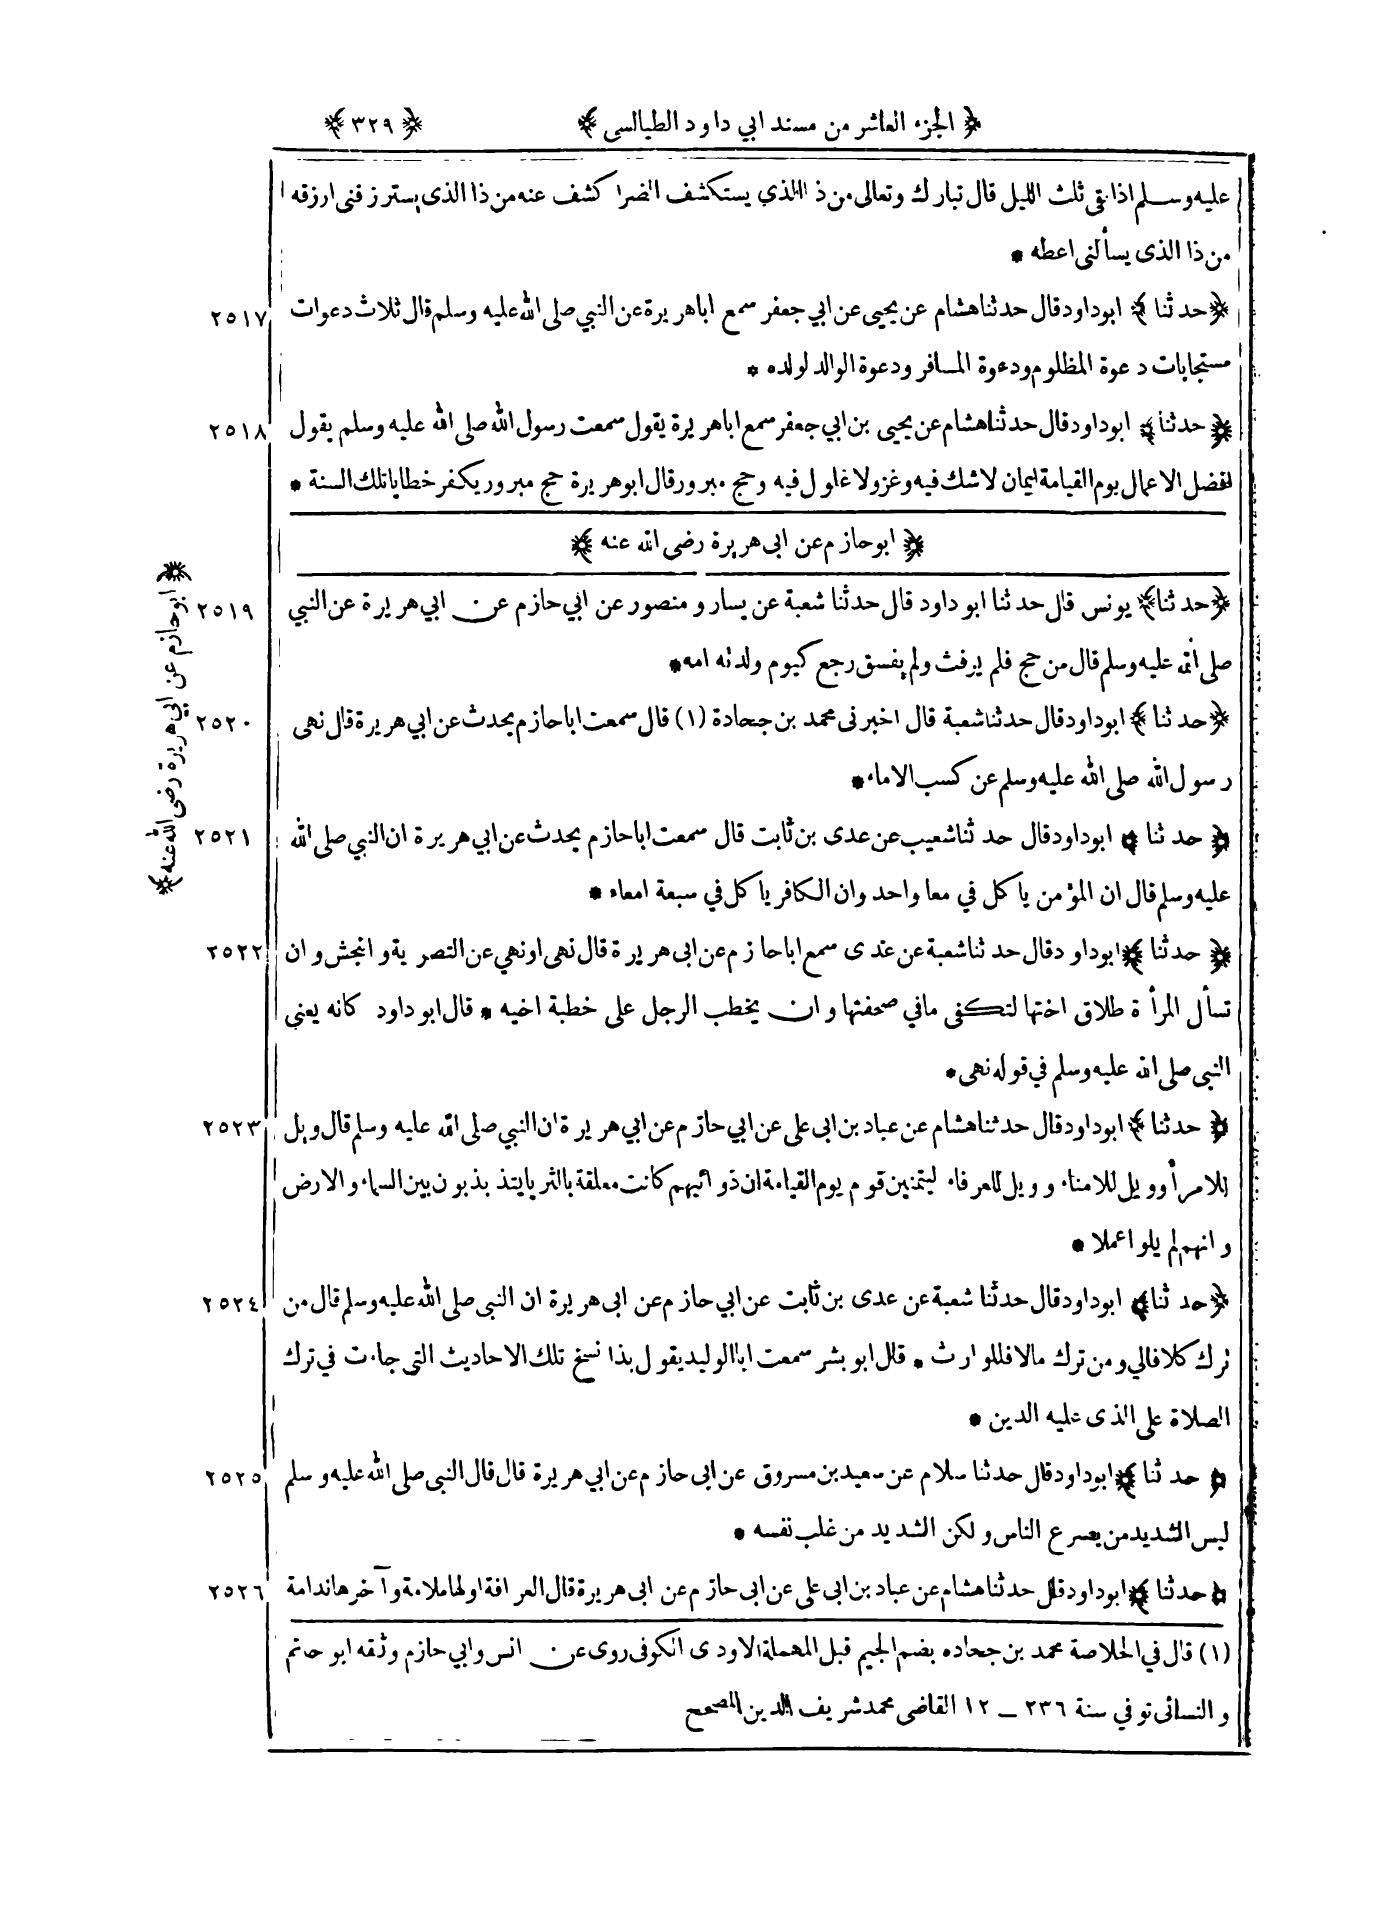 ﴿ الجزء العاشر من مسند ابي داود الطيالسي ﴾ ﴿ ٣٢٩ ﴾
عليه وسلم اذا بقى ثلث الليل قال تبارك وتعالى من ذا الذي يستكشف الضرا كشف عنه من ذا الذى يسترزقنى ارزقه
من ذا الذى يسألنى اعطه *
﴿ حدثنا ﴾ ابوداود قال حدثنا هشام عن يحيى عن ابي جعفر سمع اباهريرة عن النبي صلى الله عليه وسلم قال ثلاث دعوات ٢٥١٧
مستجابات دعوة المظلوم ودعوة المسافر ودعوة الوالد لولده *
﴿ حدثنا ﴾ ابوداود قال حدثنا هشام عن يحيى بن ابي جعفر سمع اباهريرة يقول سمعت رسول الله صلى الله عليه وسلم يقول ٢٥١٨
افضل الاعمال يوم القيامة ايمان لاشك فيه وغزو لاغلول فيه وحج مبرور قال ابوهريرة حج مبرور يكفر خطايا تلك السنة *
﴿ ابوحازم عن ابى هريرة رضى الله عنه ﴾
﴿ حدثنا ﴾ يونس قال حدثنا ابو داود قال حدثنا شعبة عن يسار و منصور عن ابي حازم عن ابي هريرة عن النبي ٢٥١٩
صلى الله عليه وسلم قال من حج فلم يرفث ولم يفسق رجع كيوم ولدته امه *
﴿ حدثنا ﴾ ابوداود قال حدثنا شعبة قال اخبرنى محمد بن جحادة (١) قال سمعت اباحازم يحدث عن ابي هريرة قال نهى ٢٥٢٠
رسول الله صلى الله عليه وسلم عن كسب الاماء *
﴿ حدثنا ﴾ ابوداود قال حدثنا شعيب عن عدى بن ثابت قال سمعت اباحازم يحدث عن ابي هريرة ان النبي صلى الله ٢٥٢١
عليه وسلم قال ان المؤمن يأكل في معا واحد وان الكافر يأكل في سبعة امعاء *
﴿ حدثنا ﴾ ابوداود قال حدثنا شعبة عن عدى سمع اباحازم عن ابى هريرة قال نهى اونهي عن التصرية و انجش و ان ٢٥٢٢
تسأل المرأة طلاق اختها لتكفى مافي صحفتها و ان يخطب الرجل على خطبة اخيه * قال ابو داود كانه يعنى
النبى صلى الله عليه وسلم في قوله نهى *
﴿ حدثنا ﴾ ابوداود قال حدثنا هشام عن عباد بن ابى على عن ابي حازم عن ابي هريرة ان النبي صلى الله عليه وسلم قال ويل ٢٥٢٣
للامرأ وويل للامناء وويل للعرفاء ليتمنين قوم يوم القيامة ان ذوائبهم كانت معلقة بالثريا يتذبذبون بين السماء والارض
و انهم لم يلوا عملا *
﴿ حدثنا ﴾ ابوداود قال حدثنا شعبة عن عدى بن ثابت عن ابي حازم عن ابى هريرة ان النبى صلى الله عليه وسلم قال من ٢٥٢٤
ترك كلا فالي ومن ترك مالا فللوارث * قال ابو بشر سمعت ابا الوليد يقول بذا نسخ تلك الاحاديث التى جاءت في ترك
الصلاة على الذى عليه الدين *
﴿ حدثنا ﴾ ابوداود قال حدثنا سلام عن سعيد بن مسروق عن ابى حازم عن ابي هريرة قال قال النبى صلى الله عليه وسلم ٢٥٢٥
ليس الشديد من يصرع الناس ولكن الشديد من غلب نفسه *
﴿ حدثنا ﴾ ابوداود قال حدثنا هشام عن عباد بن ابى على عن ابى حازم عن ابى هريرة قال العرافة اولها ملامة وآخرها ندامة ٢٥٢٦
(١) قال في الخلاصة محمد بن جحاده بضم الجيم قبل المهملة الاودى الكوفى روى عن انس وابي حازم وثقه ابو حاتم
و النسائى توفي سنة ٢٣٦ – ١٢ القاضى محمد شريف الدين المصحح
﴿ ابوحازم عن ابي هريرة رضى الله عنه ﴾